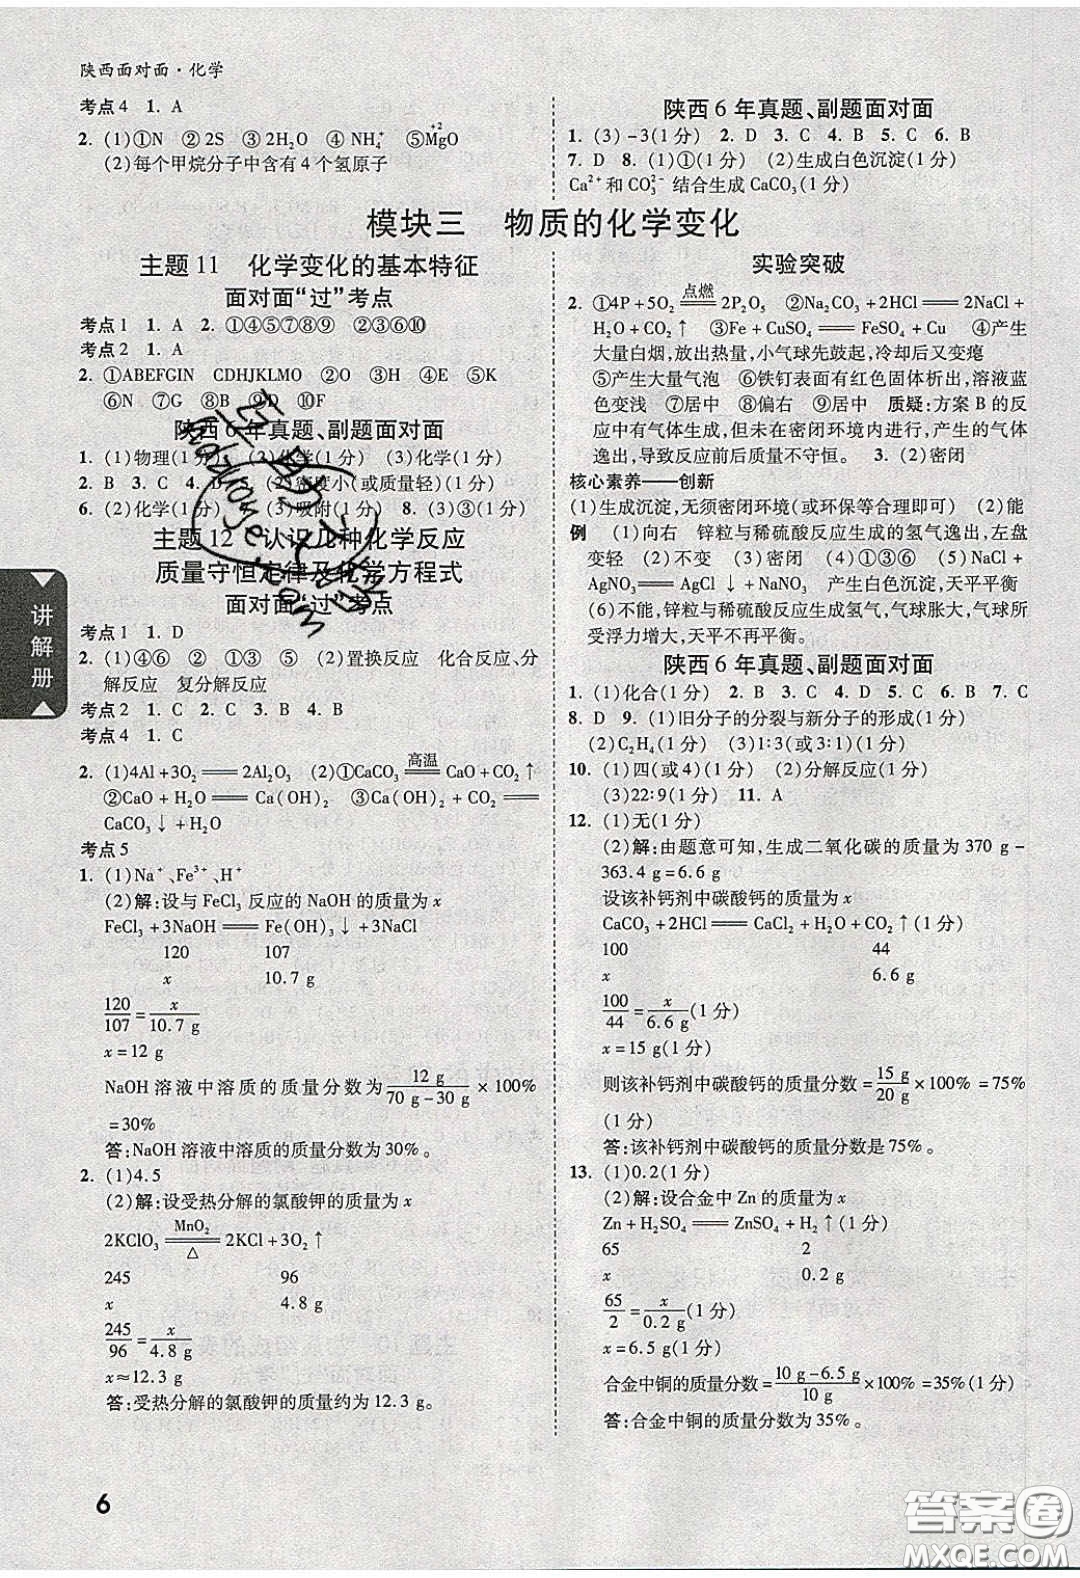 陕西面对面·化学
考点4 1. A
2. (1)①N ②2S ③2H₂O ④NH₄⁺ ⑤M⁺²gO
(2)每个甲烷分子中含有4个氢原子
陕西6年真题、副题面对面
1. (3)-3(1分) 2. D 3. C 4. B 5. C 6. B
7. D 8. (1)①(1分) (2)生成白色沉淀(1分)
Ca²⁺和CO₃²⁻结合生成CaCO₃(1分)
模块三 物质的化学变化
主题11 化学变化的基本特征
面对面“过”考点
考点1 1. A 2. ①④⑤⑦⑧⑨ ②③⑥⑩
考点2 1. A
2. ①ABEFGIN CDHJKLMO ②O ③H ④E ⑤K
⑥N ⑦G ⑧B ⑨D ⑩F
陕西6年真题、副题面对面
1. (1)物理(1分) (2)化学(1分) (3)化学(1分)
2. B 3. C 4. D 5. (2)密度小(或质量轻)(1分)
6. (2)化学(1分) (3)吸附(1分) 8. (3)③(1分)
主题12 认识几种化学反应
质量守恒定律及化学方程式
面对面“过”考点
考点1 1. D
2. (1)④⑥ ② ①③ ⑤ (2)置换反应 化合反应、分
解反应 复分解反应
考点2 1. C 2. C 3. B 4. B
考点4 1. C
2. (1)4Al+3O₂══2Al₂O₃ (2)①CaCO₃ 高温══ CaO+CO₂↑
②CaO+H₂O══Ca(OH)₂ ③Ca(OH)₂+CO₂══
CaCO₃↓+H₂O
考点5
1. (1)Na⁺、Fe³⁺、H⁺
(2)解:设与FeCl₃反应的NaOH的质量为x
FeCl₃+3NaOH══Fe(OH)₃↓+3NaCl
120 107
x 10.7 g
120/107=x/10.7 g
x=12 g
NaOH溶液中溶质的质量分数为 12 g/(70 g-30 g)×100%
=30%
答:NaOH溶液中溶质的质量分数为30%。
2. (1)4.5
(2)解:设受热分解的氯酸钾的质量为x
2KClO₃ MnO₂══△ 2KCl+3O₂↑
245 96
x 4.8 g
245/96=x/4.8 g
x≈12.3 g
答:受热分解的氯酸钾的质量约为12.3 g。
实验突破
2. ①4P+5O₂ 点燃══ 2P₂O₅ ②Na₂CO₃+2HCl══2NaCl+
H₂O+CO₂↑ ③Fe+CuSO₄══FeSO₄+Cu ④产生
大量白烟,放出热量,小气球先鼓起,冷却后又变瘪
⑤产生大量气泡 ⑥铁钉表面有红色固体析出,溶液蓝
色变浅 ⑦居中 ⑧偏右 ⑨居中 质疑:方案B的反
应中有气体生成,但未在密闭环境内进行,产生的气体
逸出,导致反应前后质量不守恒。 3. (2)密闭
核心素养——创新
(1)生成沉淀,无须密闭环境(或环保等合理即可) (2)能
例 (1)向右 锌粒与稀硫酸反应生成的氢气逸出,左盘
变轻 (2)不变 (3)密闭 (4)①③⑥ (5)NaCl+
AgNO₃══AgCl↓+NaNO₃ 产生白色沉淀,天平平衡
(6)不能,锌粒与稀硫酸反应生成氢气,气球胀大,气球所
受浮力增大,天平不再平衡。
陕西6年真题、副题面对面
1. (1)化合(1分) 2. B 3. B 4. C 5. B 6. B 7. C
8. D 9. (1)旧分子的分裂与新分子的形成(1分)
(2)C₂H₄(1分) (3)1:3(或3:1)(1分)
10. (1)四(或4)(1分) (2)分解反应(1分)
(3)22:9(1分) 11. A
12. (1)无(1分)
(2)解:由题意可知,生成二氧化碳的质量为370 g-
363.4 g=6.6 g
设该补钙剂中碳酸钙的质量为x
CaCO₃+2HCl══CaCl₂+H₂O+CO₂↑(1分)
100 44
x 6.6 g
100/44=x/6.6 g(1分)
x=15 g(1分)
则该补钙剂中碳酸钙的质量分数=15 g/20 g×100%=75%
(1分)
答:该补钙剂中碳酸钙的质量分数是75%。
13. (1)0.2(1分)
(2)解:设合金中Zn的质量为x
Zn+H₂SO₄══ZnSO₄+H₂↑(1分)
65 2
x 0.2 g
65/2=x/0.2 g(1分)
x=6.5 g(1分)
合金中铜的质量分数=(10 g-6.5 g)/10 g×100%=35%(1分)
答:合金中铜的质量分数为35%。
讲解册
6
答案圈
MXQE.COM